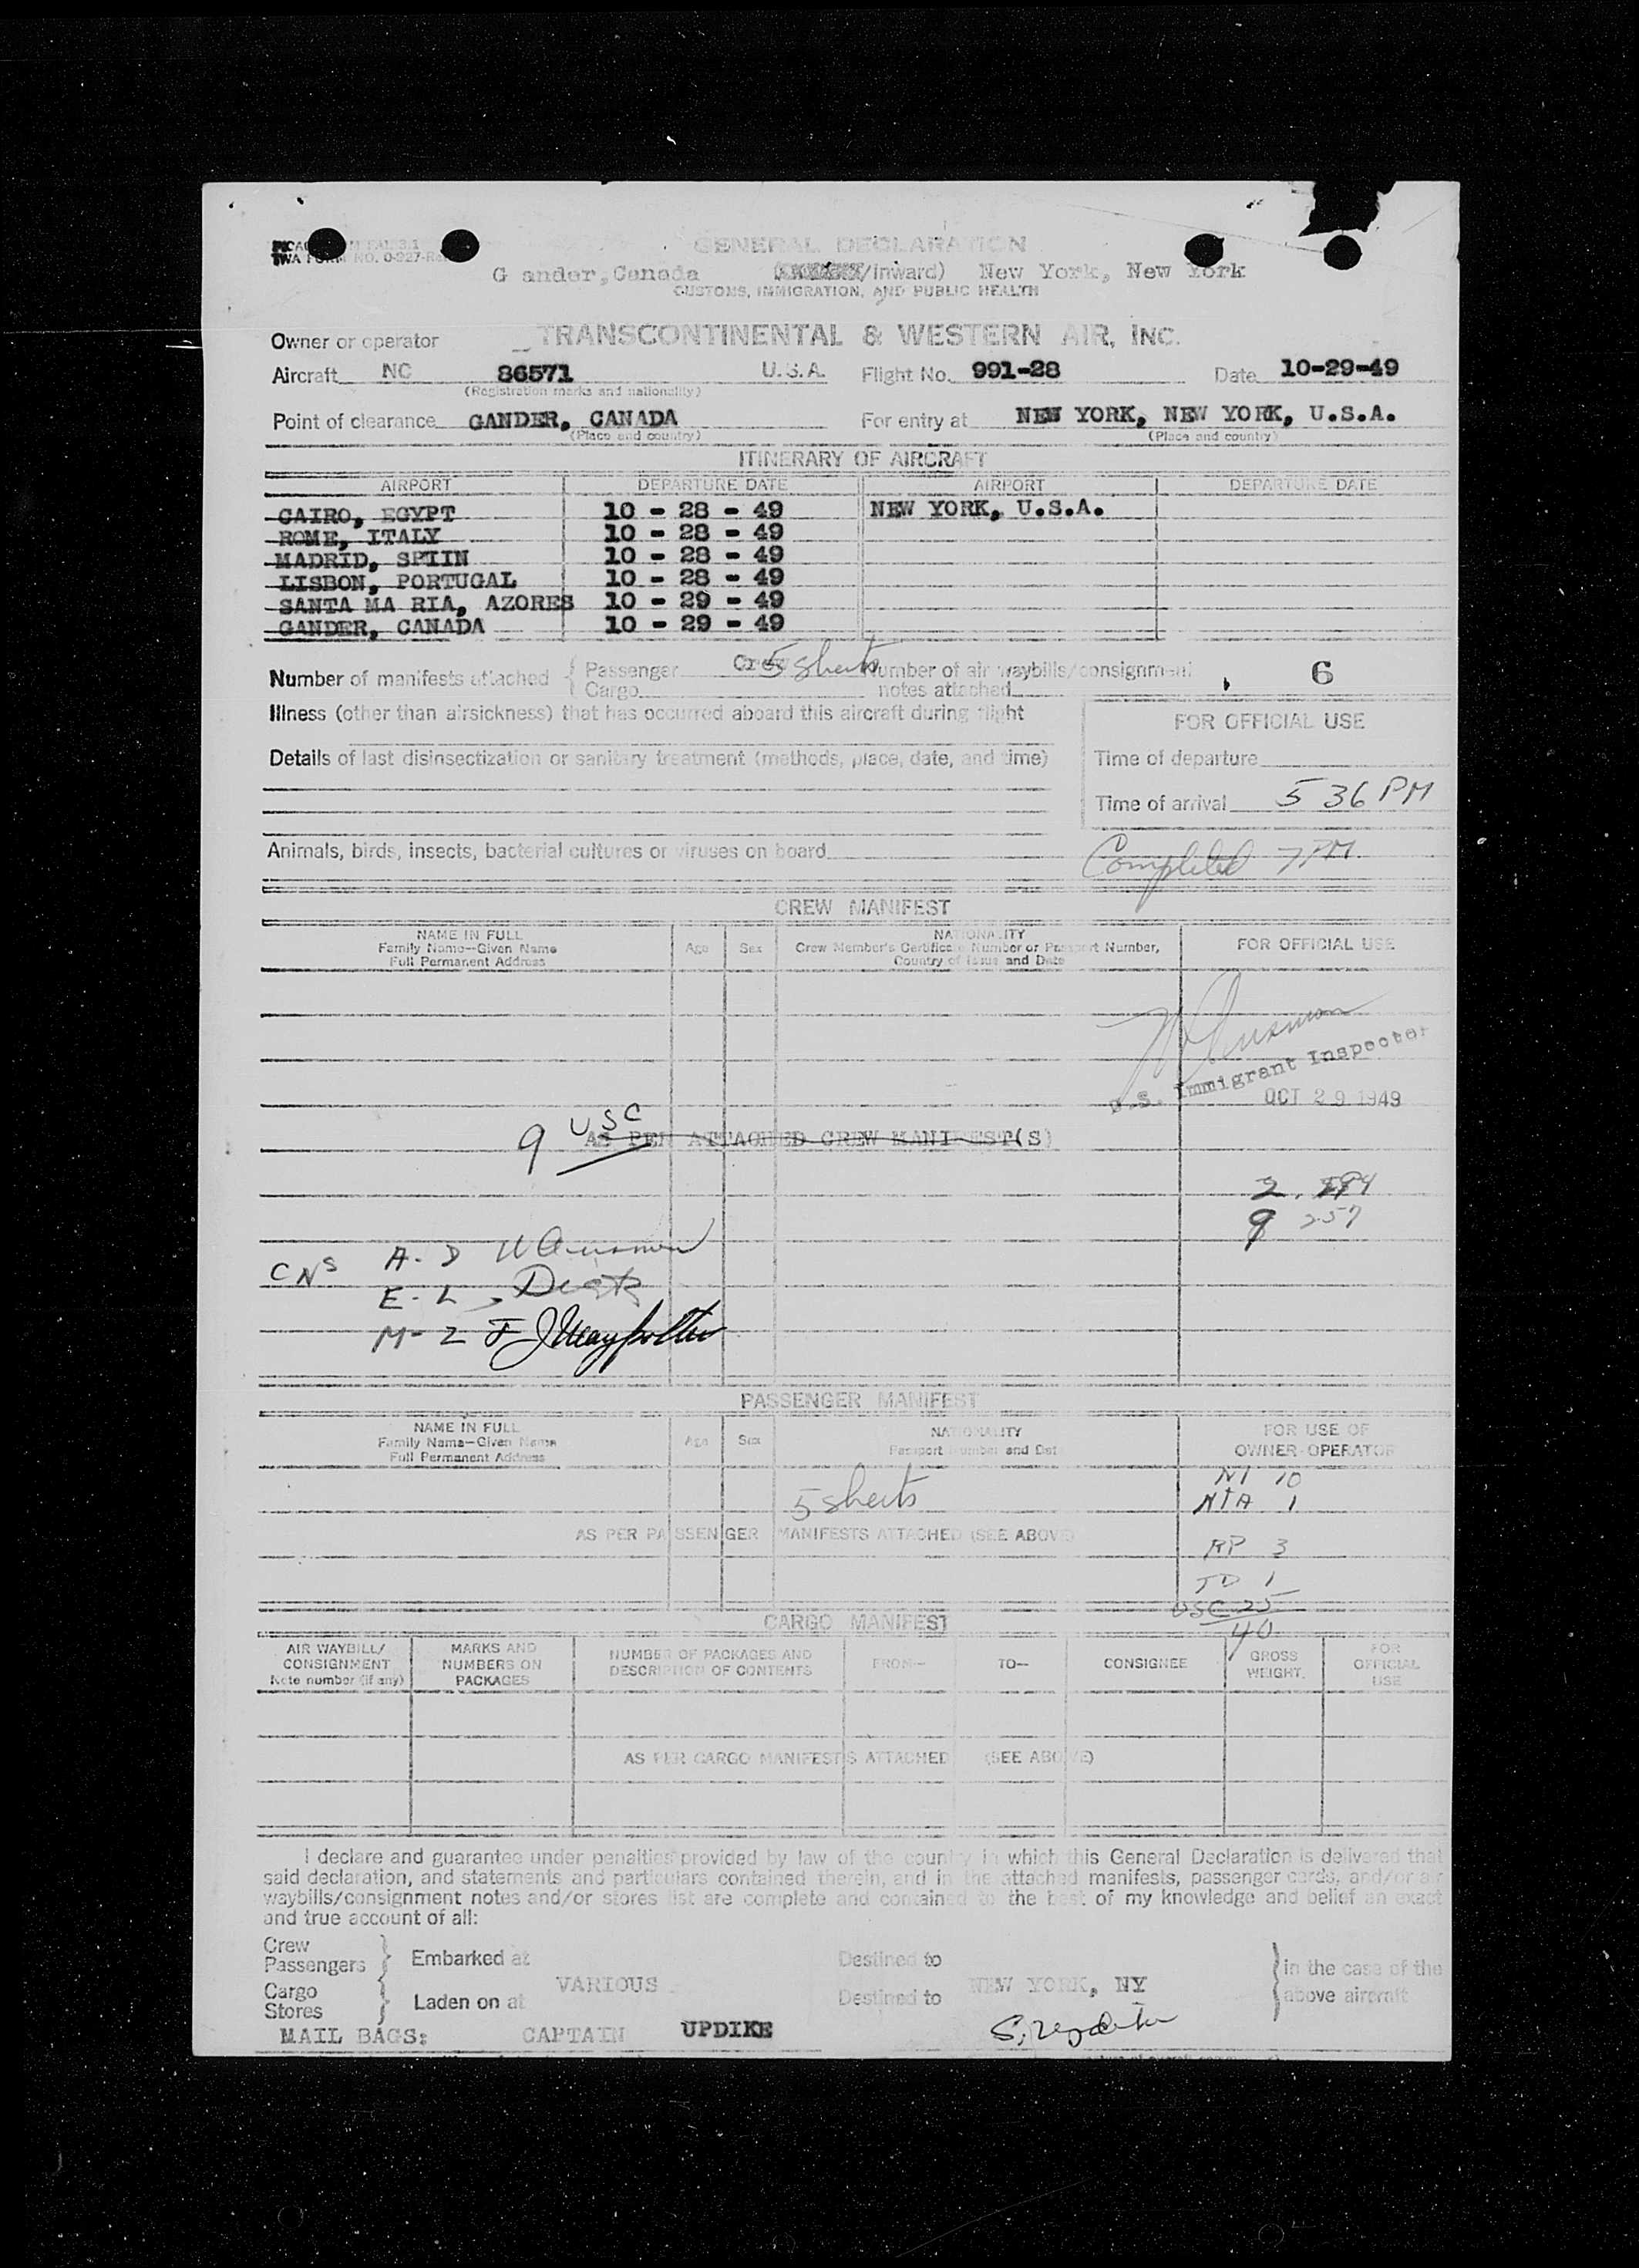 GENERAL DECLARATION
G ander, Canada /inward) New York, New York
CUSTOMS, IMMIGRATION, AND PUBLIC HEALTH
Owner or operator TRANSCONTINENTAL & WESTERN AIR, INC.
Aircraft NC 86571 U.S.A. Flight No. 991-28 Date 10-29-49
(Registration marks and nationality)
Point of clearance GANDER, CANADA For entry at NEW YORK, NEW YORK, U.S.A.
(Place and country) (Place and country)
ITINERARY OF AIRCRAFT
AIRPORT DEPARTURE DATE AIRPORT DEPARTURE DATE
CAIRO, EGYPT 10 - 28 - 49 NEW YORK, U.S.A.
ROME, ITALY 10 - 28 - 49
MADRID, SPIIN 10 - 28 - 49
LISBON, PORTUGAL 10 - 28 - 49
SANTA MA RIA, AZORES 10 - 29 - 49
GANDER, CANADA 10 - 29 - 49
Number of manifests attached { Passenger 5 sheets Number of air waybills/consignment 6
Cargo notes attached
Illness (other than airsickness) that has occurred aboard this aircraft during flight
FOR OFFICIAL USE
Details of last disinsectization or sanitary treatment (methods, place, date, and time) Time of departure
Time of arrival 5 36 PM
Animals, birds, insects, bacterial cultures or viruses on board Completed 7 PM
CREW MANIFEST
NAME IN FULL
Family Name—Given Name
Full Permanent Address
Age Sex
NATIONALITY
Crew Member's Certificate Number or Passport Number,
Country of Issue and Date
FOR OFFICIAL USE
U.S. Immigrant Inspector
OCT 29 1949
9 USC AS PER ATTACHED CREW MANIFEST(S)
2.
9 257
CNS A-D
E-L
M-Z
PASSENGER MANIFEST
NAME IN FULL
Family Name—Given Name
Full Permanent Address
Age Sex
NATIONALITY
Passport Number and Date
FOR USE OF
OWNER-OPERATOR
NI 10
5 sheets NIA 1
AS PER PASSENGER MANIFESTS ATTACHED (SEE ABOVE)
RP 3
TD 1
USC 25
40
CARGO MANIFEST
AIR WAYBILL/
CONSIGNMENT
Note number (if any)
MARKS AND
NUMBERS ON
PACKAGES
NUMBER OF PACKAGES AND
DESCRIPTION OF CONTENTS
FROM— TO— CONSIGNEE
GROSS
WEIGHT
FOR
OFFICIAL
USE
AS PER CARGO MANIFESTS ATTACHED (SEE ABOVE)
I declare and guarantee under penalties provided by law of the country in which this General Declaration is delivered that
said declaration, and statements and particulars contained therein, and in the attached manifests, passenger cards, and/or air
waybills/consignment notes and/or stores list are complete and contained to the best of my knowledge and belief an exact
and true account of all:
Crew
Passengers } Embarked at Destined to } in the case of the
VARIOUS NEW YORK, NY
Cargo
Stores } Laden on at Destined to above aircraft
MAIL BAGS: CAPTAIN UPDIKE